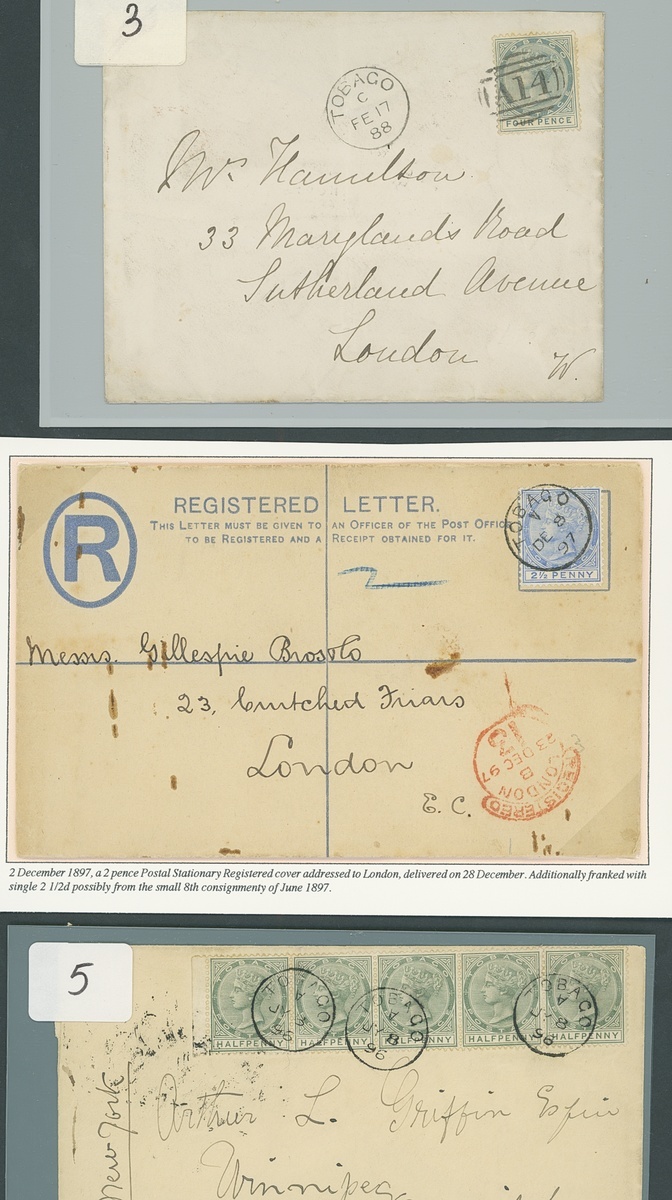 3
TOBAGO
C
FE 17
88
A14
FOUR PENCE
Mrs Hamilton
33 Marylands Road
Sutherland Avenue
London
W.
R
REGISTERED LETTER.
THIS LETTER MUST BE GIVEN TO AN OFFICER OF THE POST OFFIC
TO BE REGISTERED AND A RECEIPT OBTAINED FOR IT.
TOBAGO
A
DE 8
97
2½ PENNY
Messrs. Gillespie Bros & Co
23, Crutched Friars
London
E. C.
REGISTERED
LONDON
B
23 DEC 97
2 December 1897, a 2 pence Postal Stationary Registered cover addressed to London, delivered on 28 December. Additionally franked with
single 2 1/2d possibly from the small 8th consignmenty of June 1897.
5
TOBAGO TOBAGO TOBAGO TOBAGO TOBAGO
HALFPENNY HALFPENNY HALFPENNY HALFPENNY HALFPENNY
TOBAGO
TOBAGO
A
8
96
TOBAGO
A
8
96
New York
Arthur L. Griffin Esq
Winnipeg